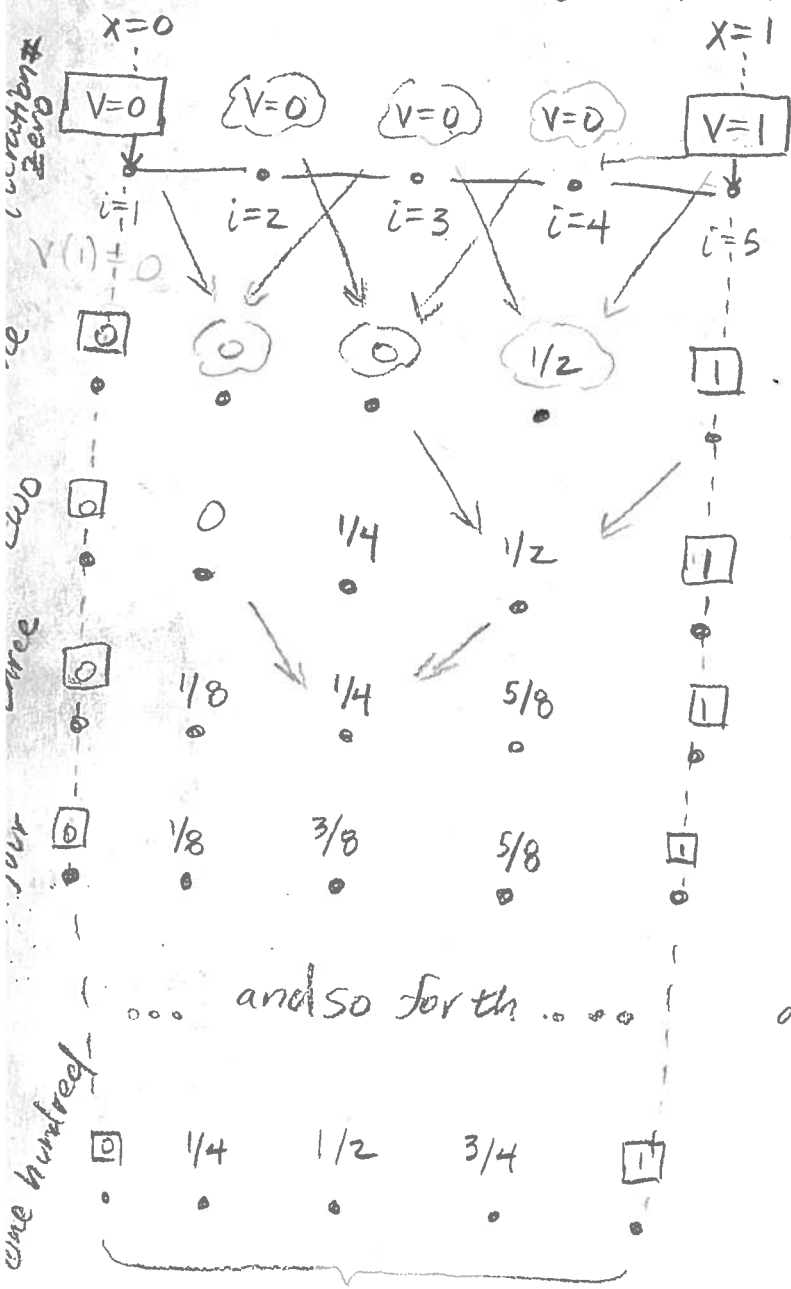 x=0 x=1
Iteration# zero V=0 V=0 V=0 V=0 V=1
i=1 i=2 i=3 i=4 i=5
V(1)=0
0 0 0 1/2 1
two 0 0 1/4 1/2 1
three 0 1/8 1/4 5/8 1
four 0 1/8 3/8 5/8 1
... and so forth .....
one hundred 0 1/4 1/2 3/4 1